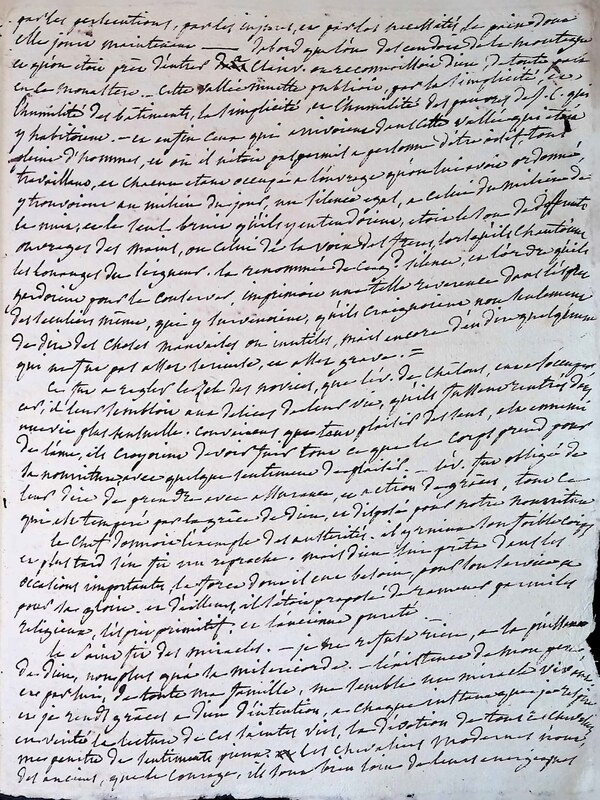 par les persecutions, par les injures, et par les necessités, le prix dont
elle jouit maintenant — d'abord que l'on descendoit de la montagne
et qu'on etoit près d'entrer à Clairv. on reconnoissoit dieu de toute part
en ce monastère. — Cette vallée muette publioit, par la simplicité, et
l'humilité des bâtiments, la simplicité, et l'humilité des pauvres de J. C. qui
y habitoient. — et enfin ceux qui arrivoient dans cette vallée qui étoit
pleine d'hommes, et où il n'étoit pas permis a personne d'être oisif, tous
travaillant, et chacun etant occupé a l'ouvrage qu'on lui avoit ordonné,
y trouvoient au milieu du jour, un silence egal, a celui du milieu de
la nuit, et le seul bruit qu'ils y entendoient, etoit le son de differents
ouvrages des mains, ou celui de la voix des frères, lorsqu'ils chantoient
les louanges du seigneur. la renommée de ce gd. silence, et l'ordre qu'ils
gardoient pour le conserver, imprimoit une telle reverence dans l'esprit
des seculiers même, qui y survenoient, qu'ils craignoient non seulement
de dire des choses mauvaises ou inutiles, mais encore d'en dire quelqu'une
qui ne fut pas assez serieuse, et assez grave. =
Ce fut a regler le zèle des novices, que l'év. de Châlons, eut a s'occuper
car, il leur sembloit aux delices de leur vie, qu'ils fussent rentrés dans
une vie plus sensuelle. convaincus que tout plaisir des sens, est ennemi
de l'ame, ils croyoient devoir fuir tout ce que le corps prend pour
la nourriture avec quelque sentiment de plaisir. — l'év. fut obligé de
leur dire de prendre avec assurance, et action de graces, tout ce
qui est temperé par la grâce de dieu, et disposé pour notre nourriture
le chef donnoit l'exemple des austérités. il y ruina son foible corps
et plus tard s'en fit un reproche. mais dieu lui prêta dans les
occasions importantes, la force dont il eut besoin pour son service et
pour sa gloire. et d'ailleurs, il s'etoit proposé de ramener parmi les
religieux, l'esprit primitif et l'ancienne pureté
le saint fit des miracles. — je ne refuse rien, a la puissance
de dieu, non plus qu'à sa misericorde. — l'existence de mon pere
et par lui, de toute ma famille, me semble un miracle vivant
et je rends grâces a dieu d'intention, a chaque instant que je respire
en verité la lecture de ces saintes vies, la devotion de tous ces chevaliers
me penetre de sentiments pieux. les chevaliers modernes n'ont,
des anciens, que le courage, ils sont bien loin de leurs energiques